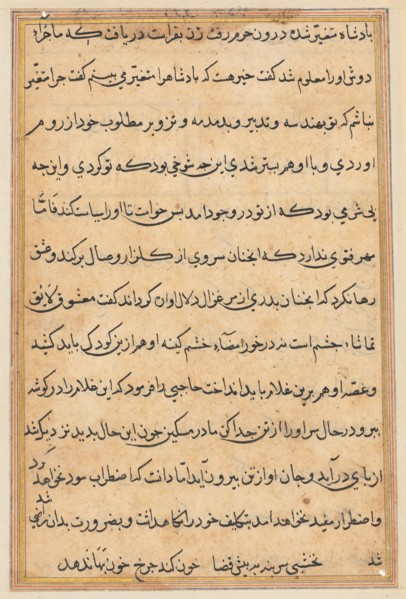 بادشاه متغیر شده درون حرم رفت زن بفراست دریافت که ماجراء
دوش او را معلوم شد کفت خیر هست که بادشاه را متغیر می بینم کفت چرا متغیر
نباشم که تو بهندسه و تدبیر و بدمدمه و تزویر مطلوب خود از روم
اوردی و با او همبستر شدی این چه شوخی بود که تو کردی و این چه
بی شرمی بود که از تو در وجود امد بس خواست تا او را سیاست کند فامّا
مهر فتوی نداد که انجنان سروی از کلزار وصال برکند و عشق
رها نکرد که انجنان بدری از سر کرداند کفت معشوق لایق
تماشاء چشم است نه در خور امضاء خشم کینه او هم ازین کودک باید کشید
و غصه او هم برین غلام باید انداخت حاجبی را فرمود که این غلام را در کوشه
ببر و در حال سر او را از تن جدا کن مادر مسکین چون این حال بدید نزدیک شد
از بای در آید و جان او از تن بیرون آید امّا دانست که اضطراب سود نخواهد کرد
و اضطرار مفید نخواهد امد بتکلف خود را نکاهداشت و بضرورت بدان راضی شد
شد نخشبی سر بنه قضا خون کند چرخ خون بها ندهد